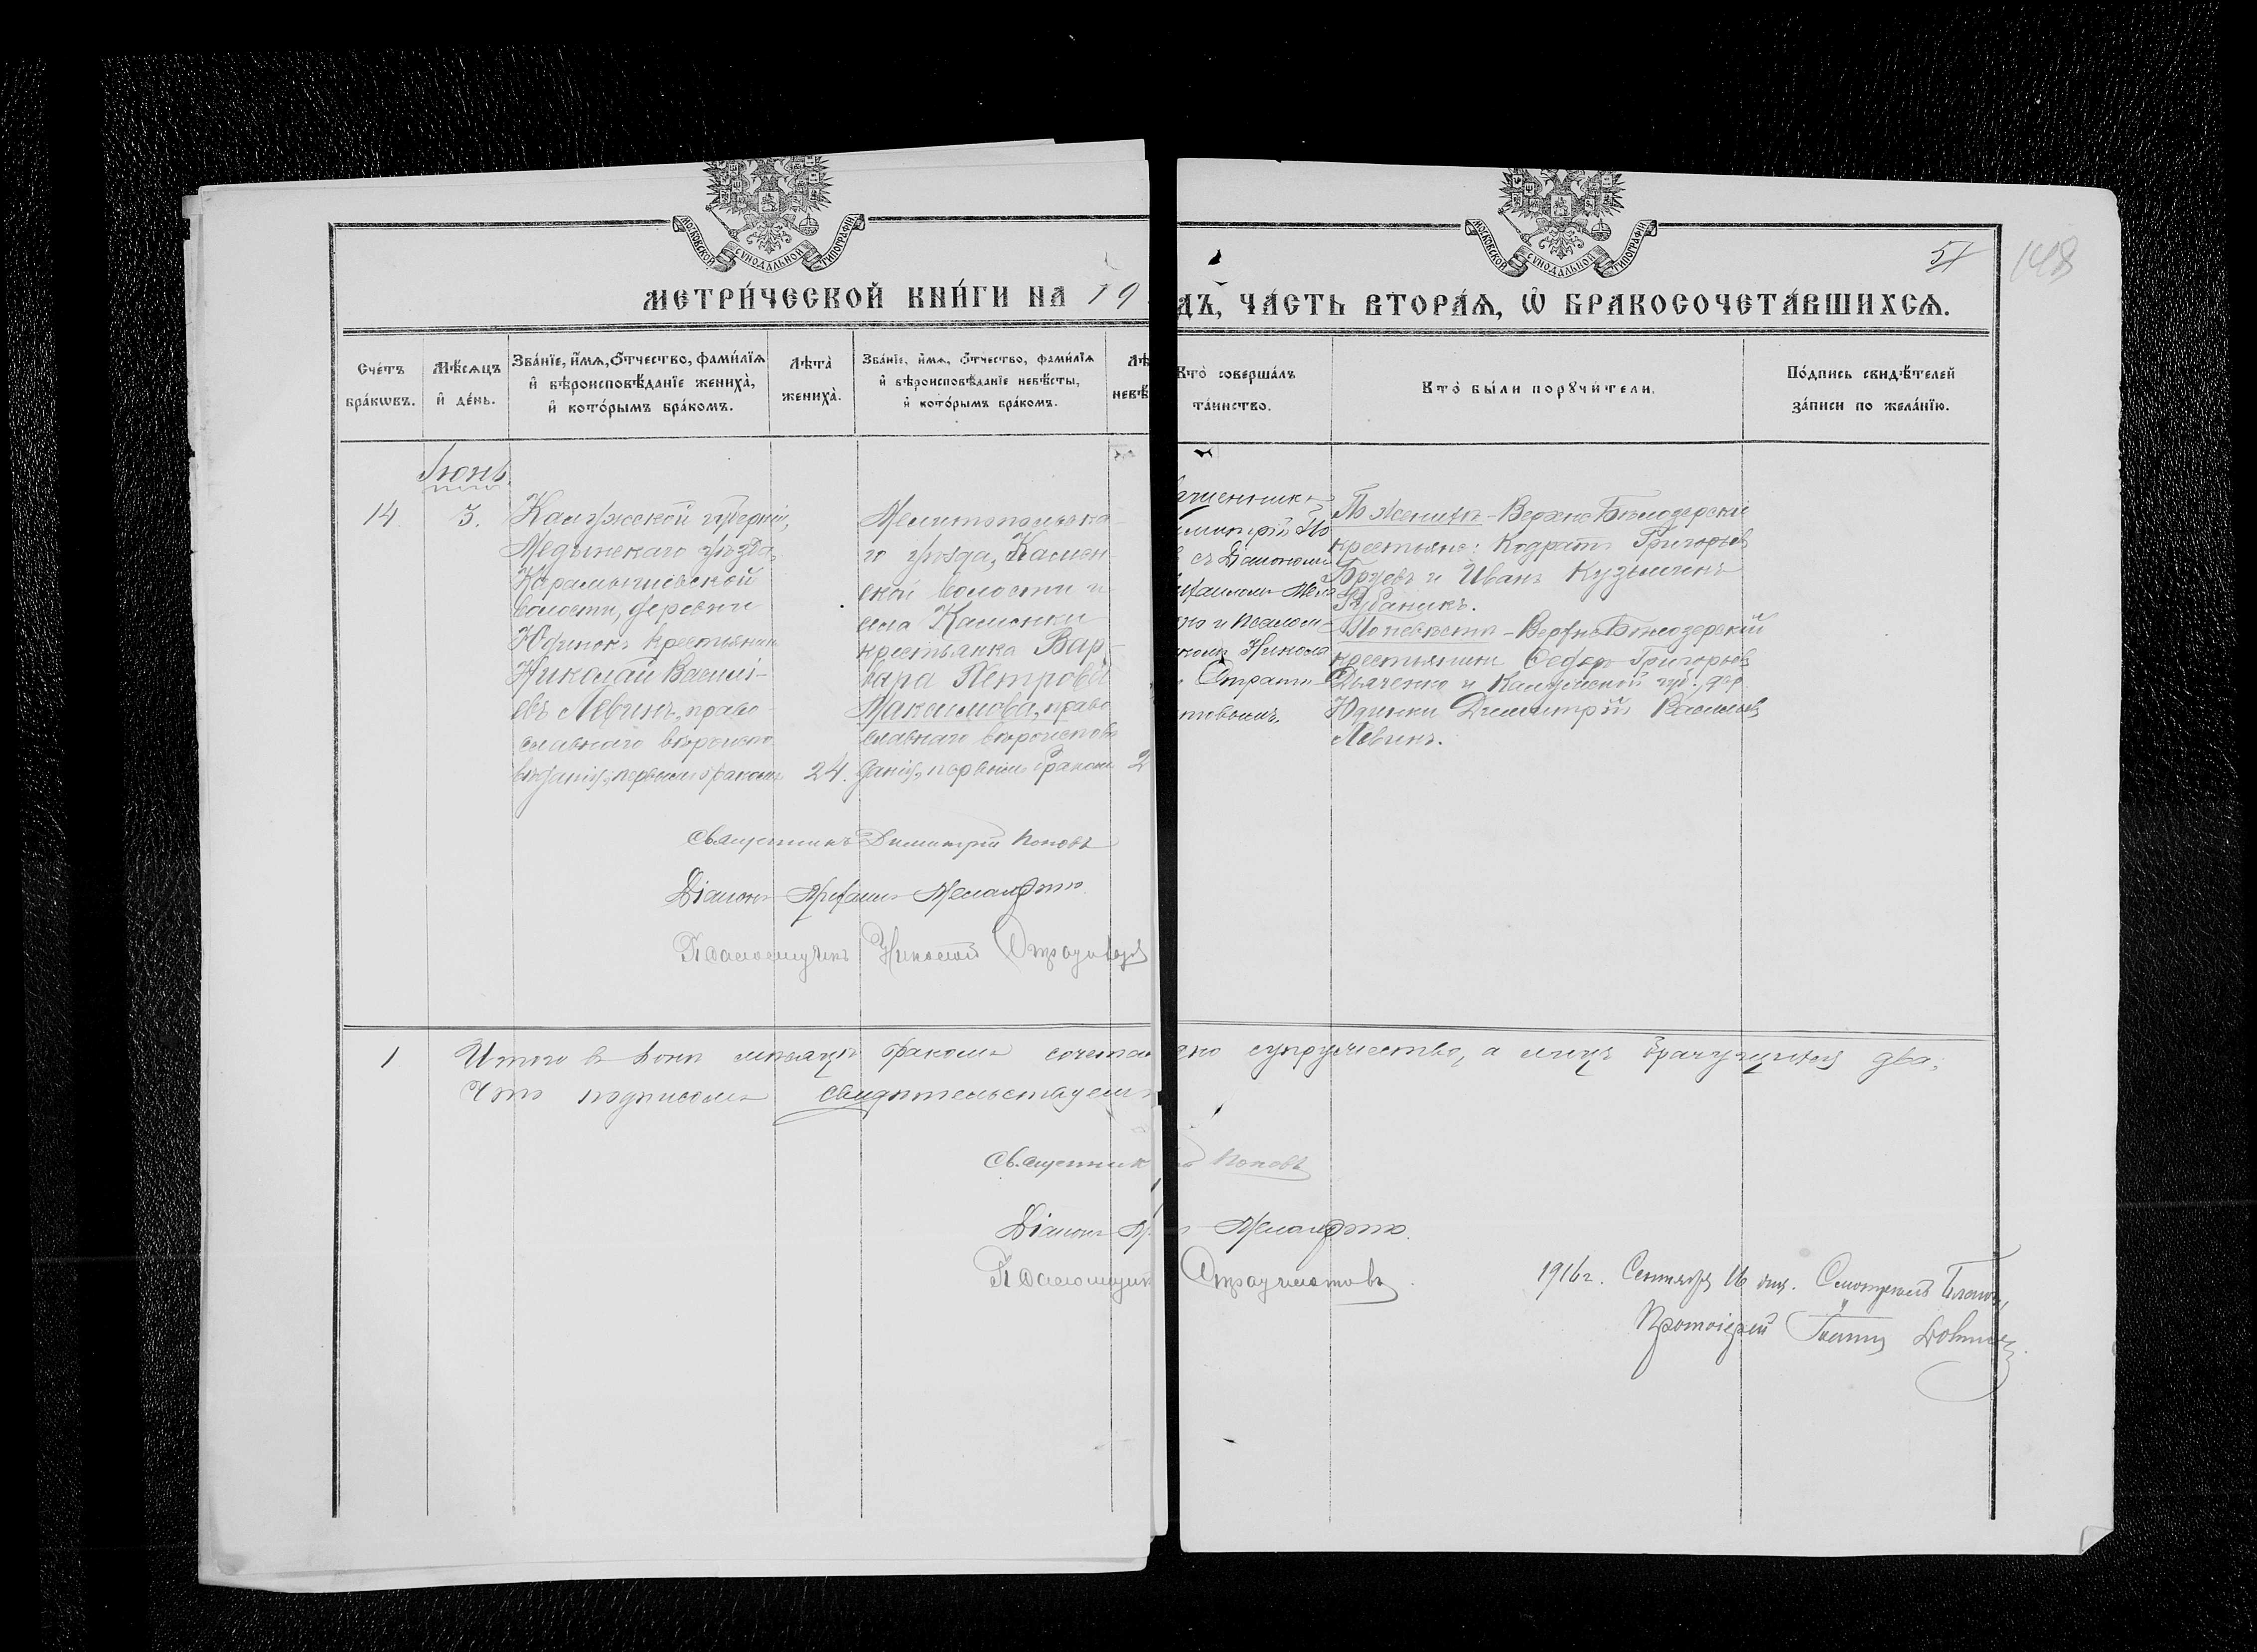 МОСКОВСКОЙ СѴНОДАЛЬНОЙ ТИПОГРАФІИ
МОСКОВСКОЙ СѴНОДАЛЬНОЙ ТИПОГРАФІИ
51
148
МЕТРИ́ЧЕСКОЙ КНИ́ГИ НА 19
ДЪ, ЧА́СТЬ ВТОРА́Ѧ, Ѽ БРАКОСОЧЕТА́ВШИХСѦ.
Сче́тъ бра́кѡвъ.
Мѣ́сѧцъ и҆ де́нь.
Зва́нїе, и҆́мѧ, ѻ҆́тчество, фами́лїѧ
и҆ вѣроисповѣ́данїе жениха̀,
и҆ кото́рымъ бра́комъ.
Лѣта̀ жениха̀.
Зва́нїе, и҆́мѧ, ѻ҆́тчество, фами́лїѧ
и҆ вѣроисповѣ́данїе невѣ́сты,
и҆ кото́рымъ бра́комъ.
Лѣ
невѣ́
Кто̀ соверша́лъ
та́инство.
Кто̀ бы́ли порꙋчи́тели.
По́дпись свидѣ́телей
за́писи по жела́нїю.
Іюнь.
14.
3.
Калужской губерніи,
Медынскаго уѣзда,
Карамышевской
волости, деревни
Юдинокъ крестьянин
Николай Василі-
евъ Левинъ, право-
славнаго вѣроиспо
вѣданія, первымъ бракомъ
24.
Мелитопольска-
го уѣзда, Камен
ской волости и
села Каменки
крестьянка Вар-
вара Петрова
Максимова, право
славнаго вѣроисповѣ
данія, первымъ бракомъ
2
ященникъ
имитрій По
съ Діакономъ
ихаиломъ Мел
ко и Псалом-
комъ Никола
Страти-
товымъ.
По женихѣ - Верхне Бѣлозерскіе
крестьяне: Кодратъ Григорьев
Бруевъ и Иванъ Кузьминъ
Рубаникъ.
По невѣстѣ - Верхне Бѣлозерскій
крестьянинъ Ѳедоръ Григорьев
Дьяченко и Калужской губ., дер
Юдинки Димитрій Васильев
Левинъ.
Священникъ Димитрій Поповъ
Діаконъ Михаилъ
Псаломщикъ Николай
1
Итого въ Іюнѣ мѣсяцѣ бракомъ сочета
ано супружество, а лицъ брачущихся два;
Что подписомъ свидѣтельствуемъ
Священник
Поповъ
Діаконъ М
Псаломщик
1916 г. Сентября 16 дня. Смотрѣлъ Благоч.
Протоіерей Іоаннъ